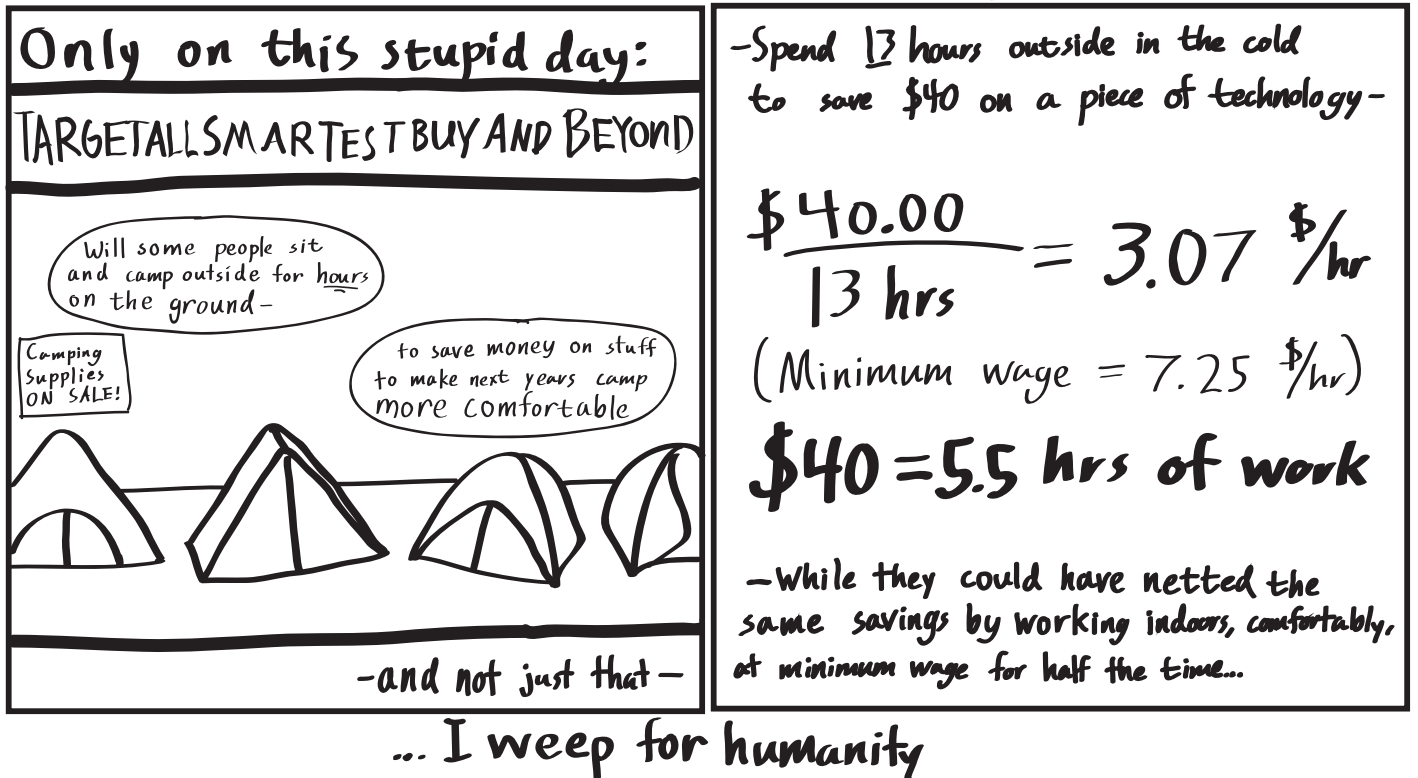 Only on this stupid day:
TARGETALLSMARTESTBUY AND BEYOND
Will some people sit
and camp outside for hours
on the ground-
to save money on stuff
to make next years camp
more comfortable
Camping
Supplies
ON SALE!
-and not just that-
-Spend 13 hours outside in the cold
to save $40 on a piece of technology-
$40.00
13 hrs
= 3.07 $/hr
(Minimum wage = 7.25 $/hr)
$40 = 5.5 hrs of work
-While they could have netted the
same savings by working indoors, comfortably,
at minimum wage for half the time...
... I weep for humanity